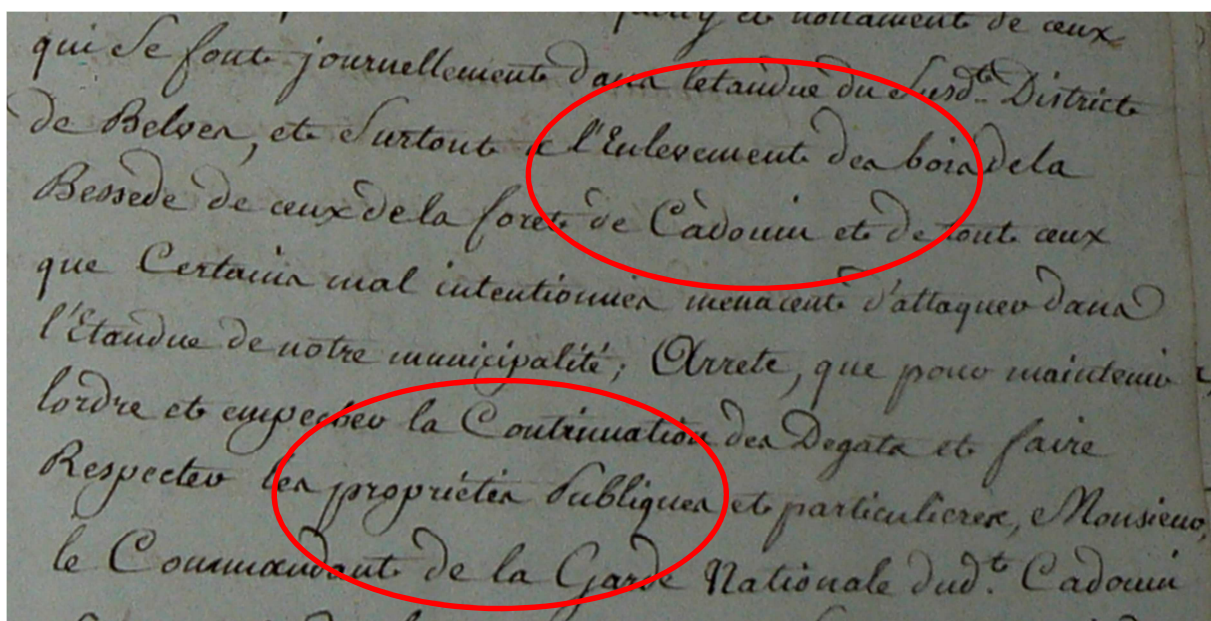 et nottament de ceux
qui Se font journellement dans letandue du Susd.t District
de Belves, et Surtout de l'Enlevement des bois de la
Bessede de ceux de la foret de Cadouin et de tout ceux
que Certains mal intentionnés menacent d'attaquer dans
l'Etandue de notre municipalité; Arrete, que pour maintenir
lordre et empecher la Continuation des Degats et faire
Respecter les propriétés Publiques et particulieres, Monsieur,
le Commandant de la Garde Nationale dud.t Cadouin